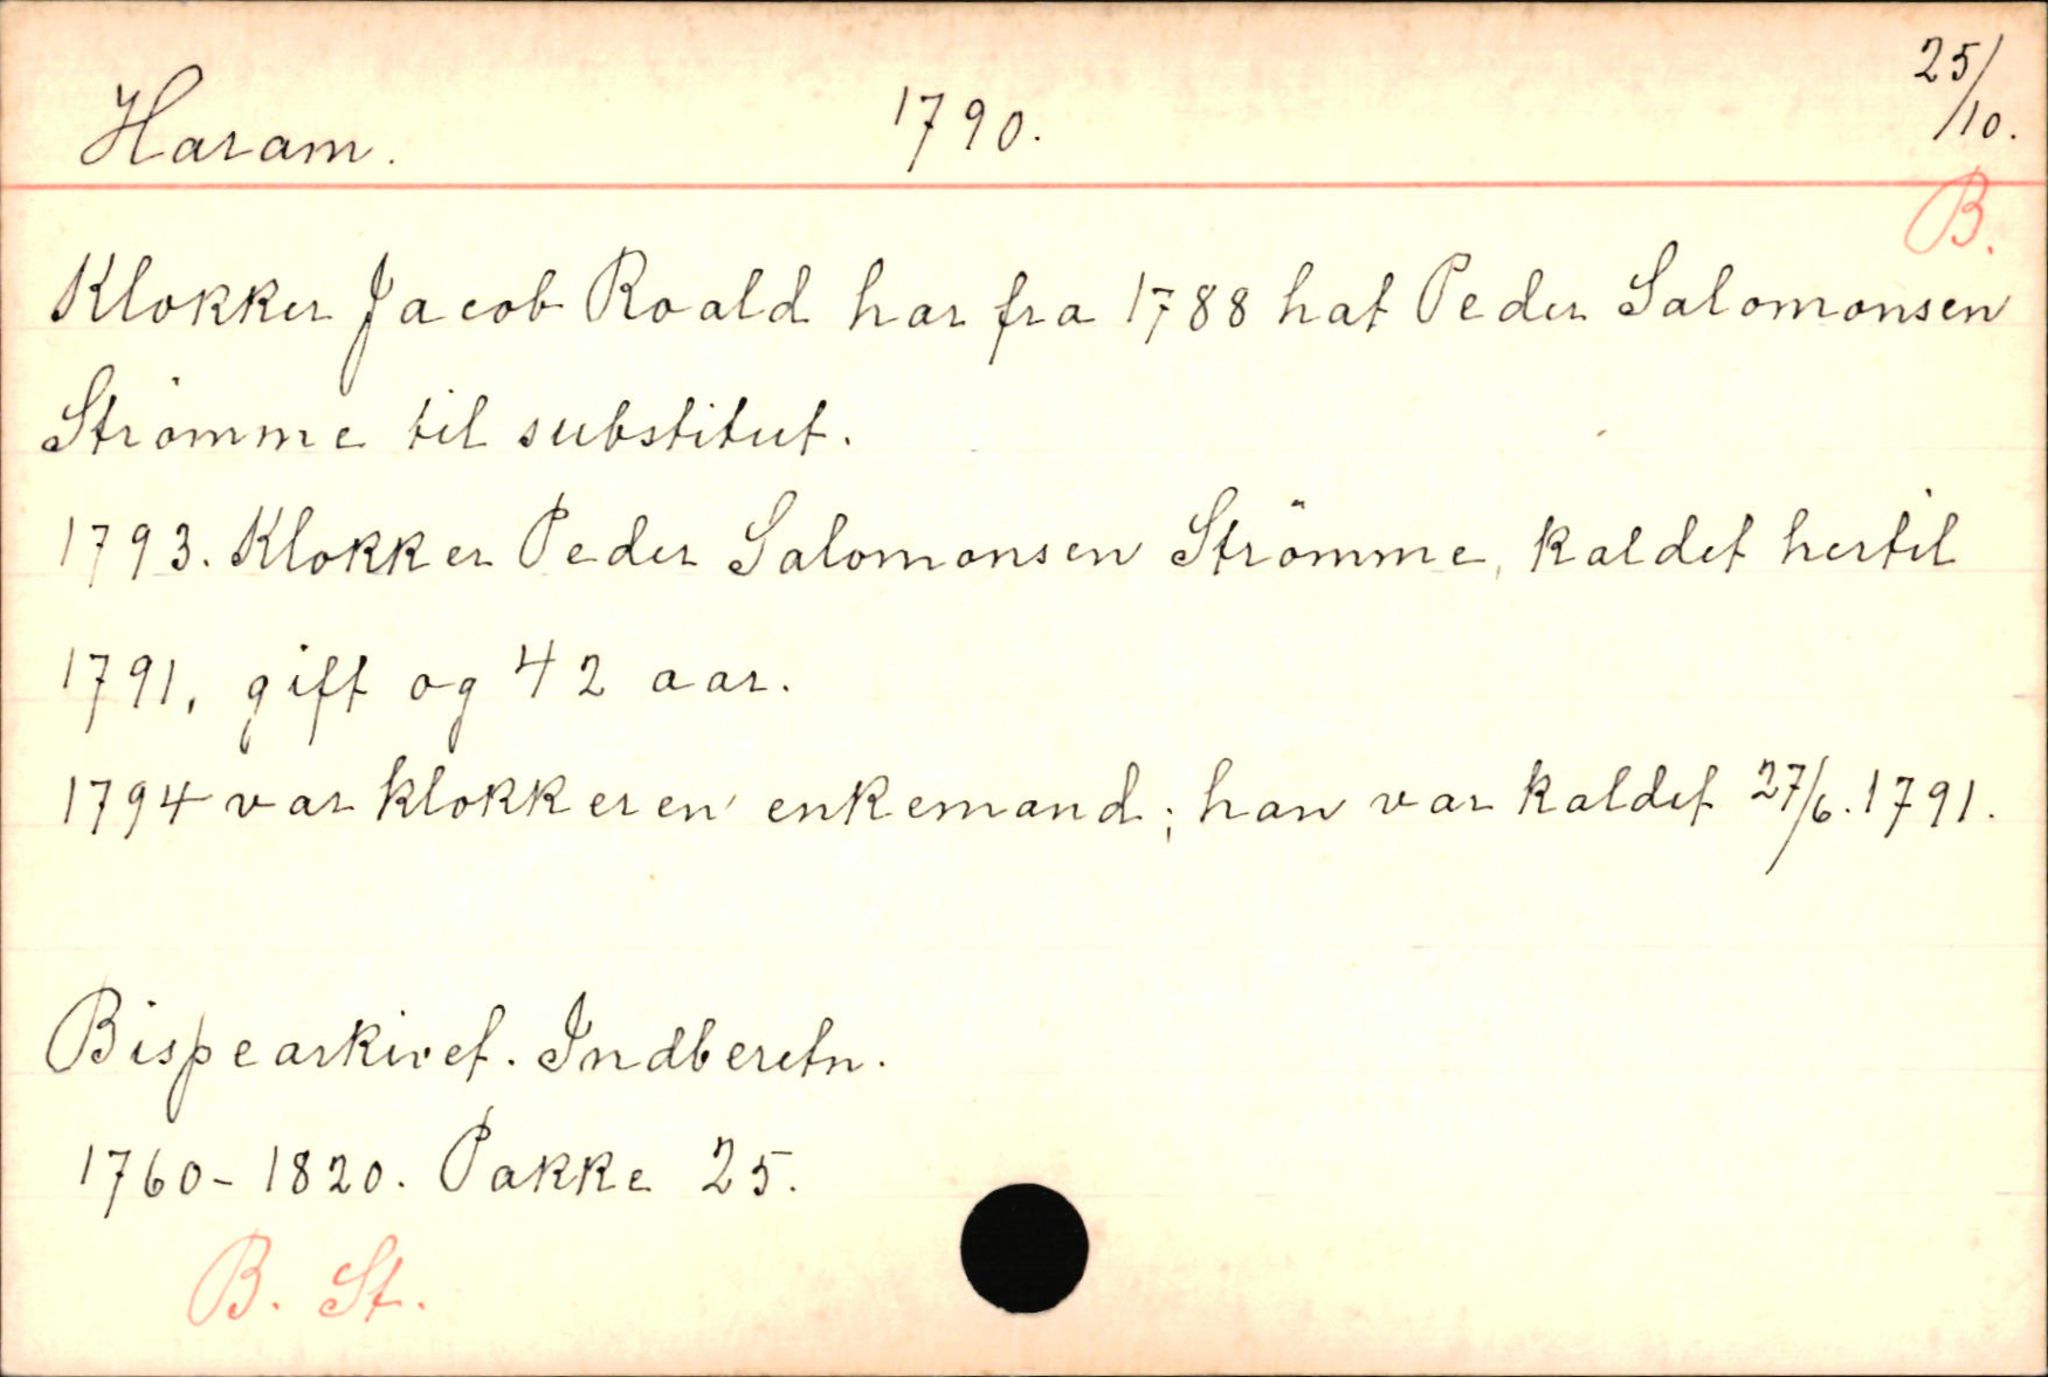 Haram. 1790. 25/10.
B.
Klokker Jacob Roald har fra 1788 hat Peder Salomonsen
Strömme til substitut.
1793. Klokker Peder Salomonsen Strömme, kaldet hertil
1791, gift og 42 aar.
1794 var klokkeren enkemand; han var kaldet 27/6. 1791.
Bispearkivet. Indberetn.
1760-1820. Pakke 25.
B. St.